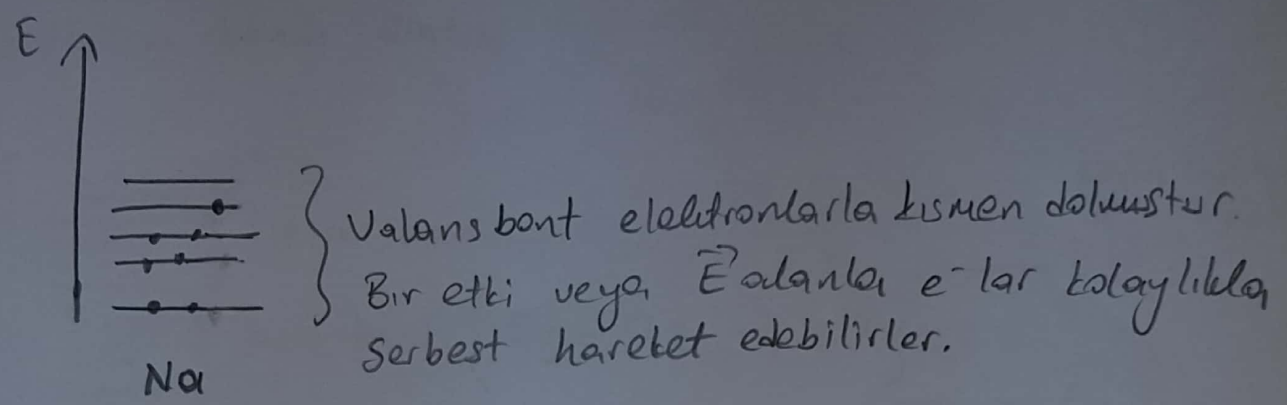 E
Valans bant elektronlarla kısmen dolmuştur.
Bir etki veya E⃗ alanla e⁻ lar kolaylıkla
serbest hareket edebilirler.
Na